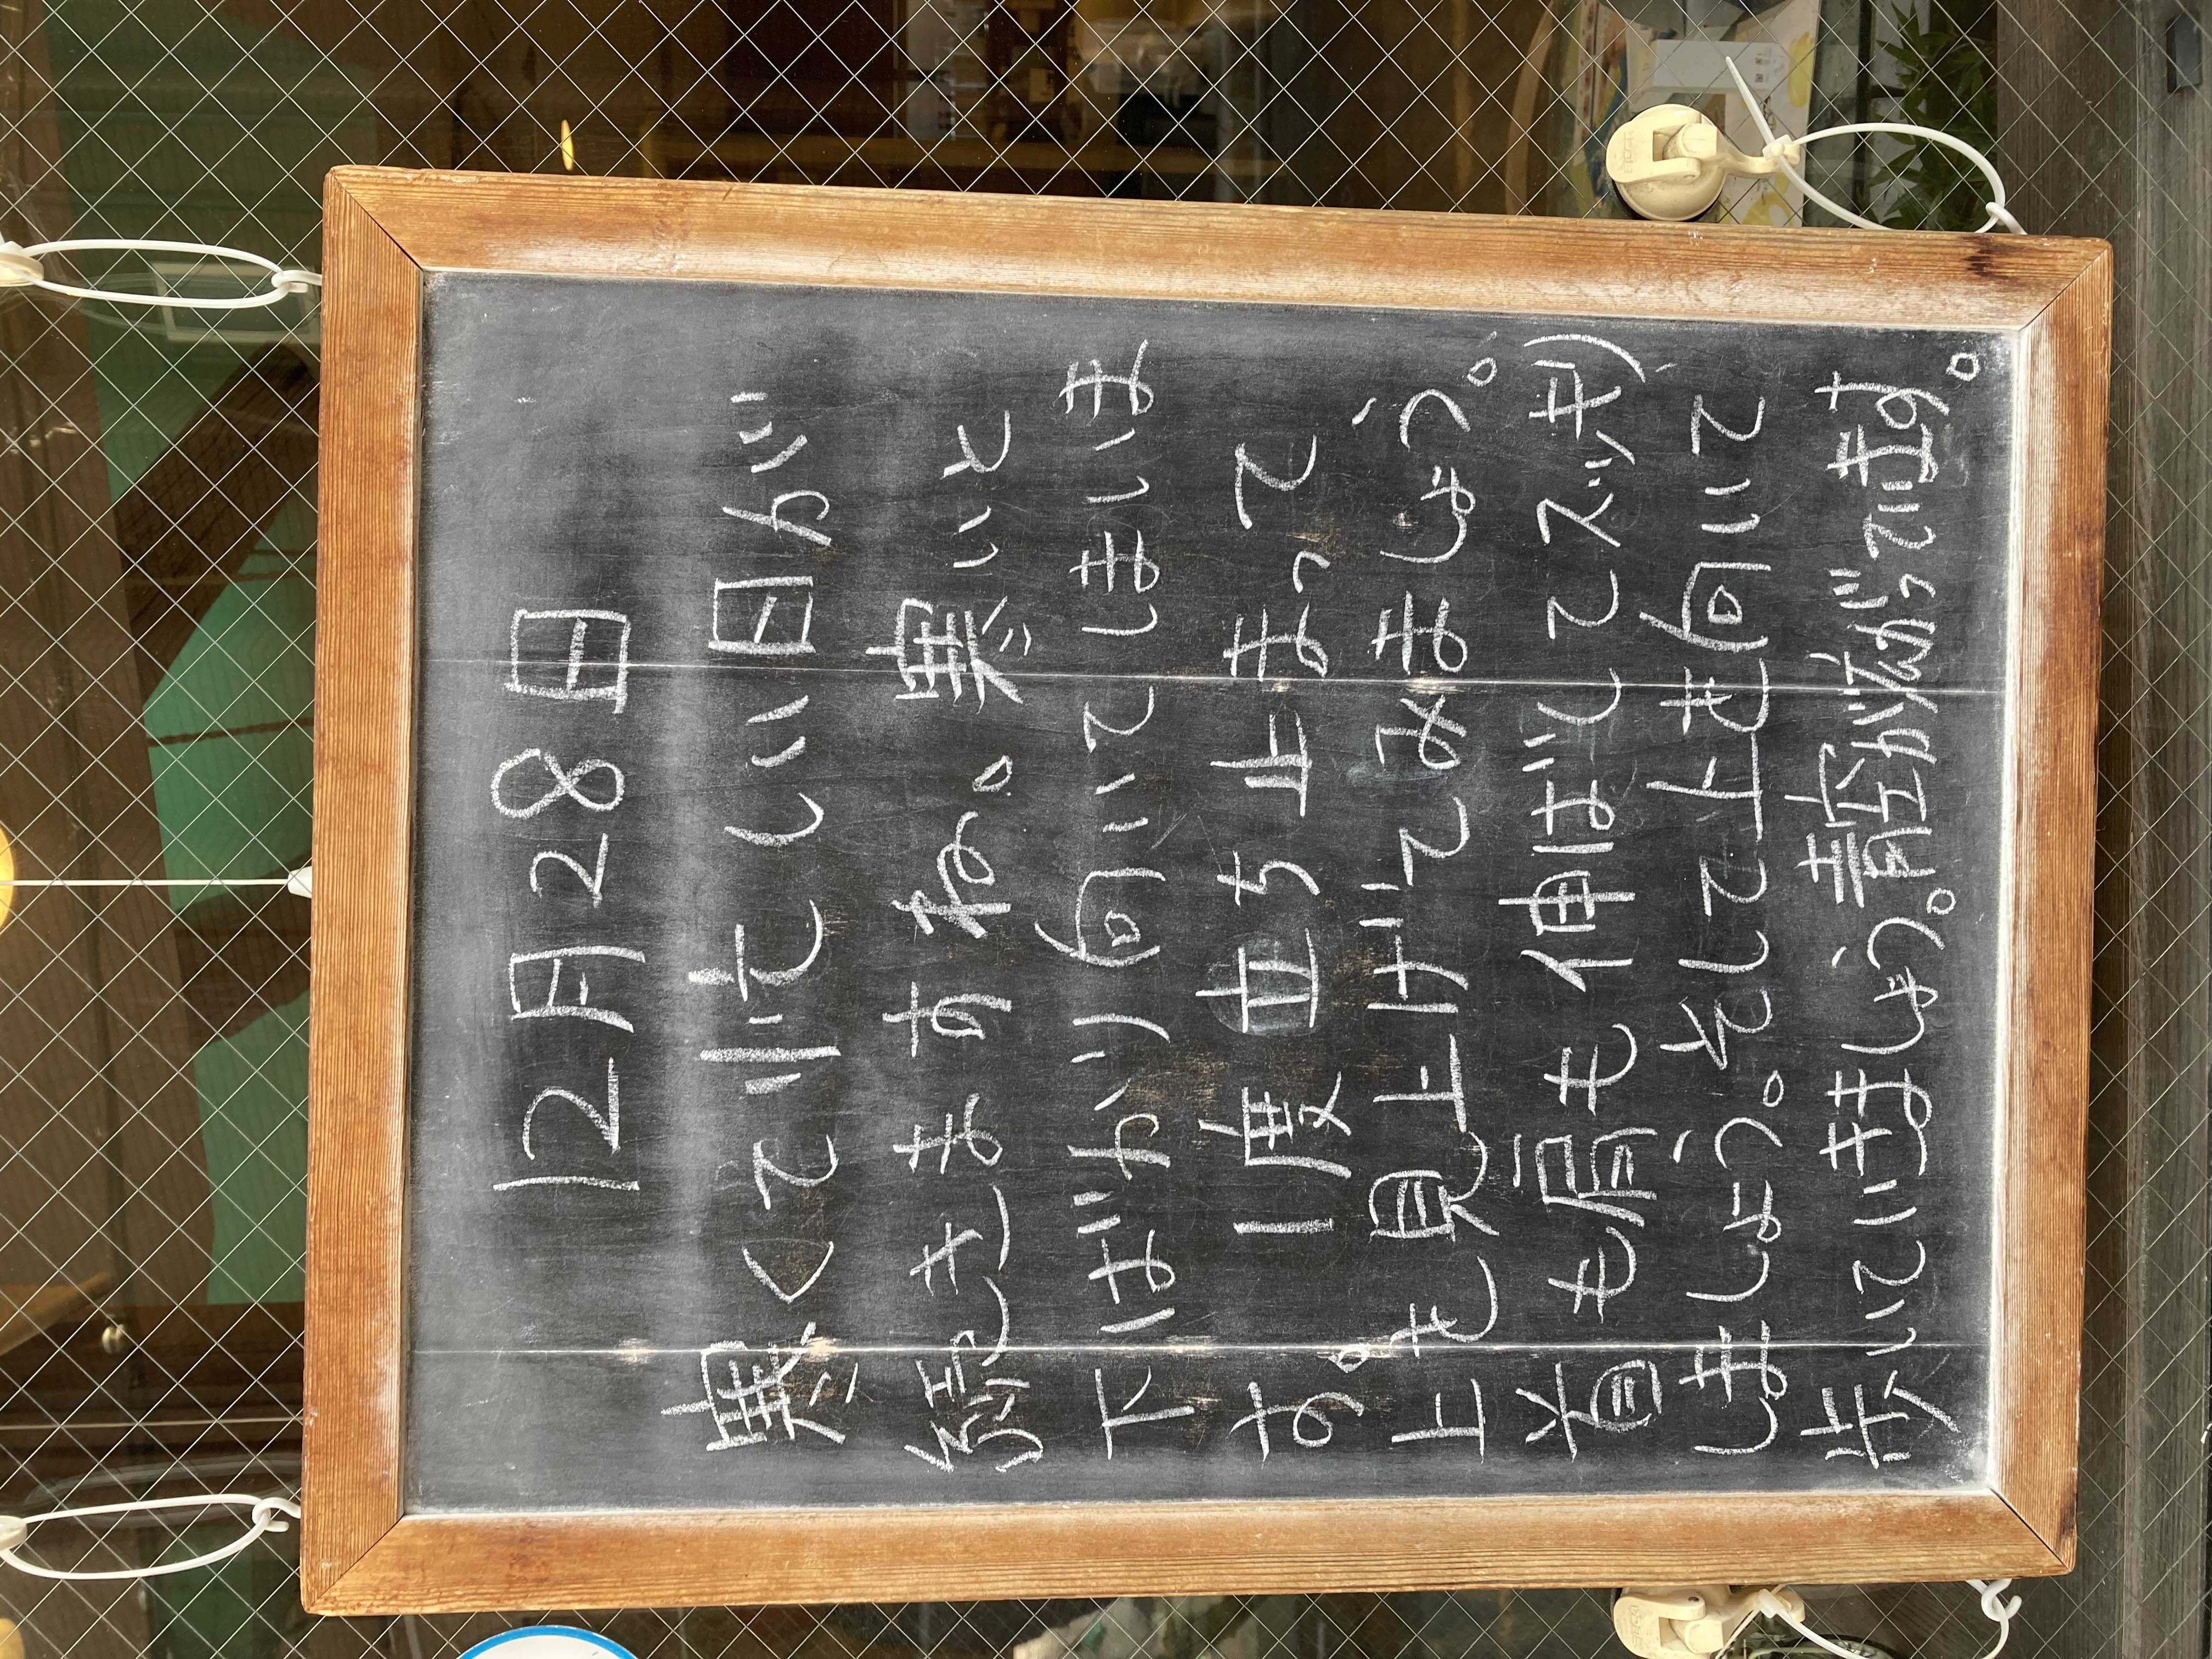 12月28日
寒くて忙しい日が
続きますね。寒いと
下ばかり向いてしまいま
す。一度立ち止まって
上を見上げてみましょう。
首も肩も伸ばしてスッキリ
しましょう。そして下も向いて
歩いていきましょう。青空が広がっています。